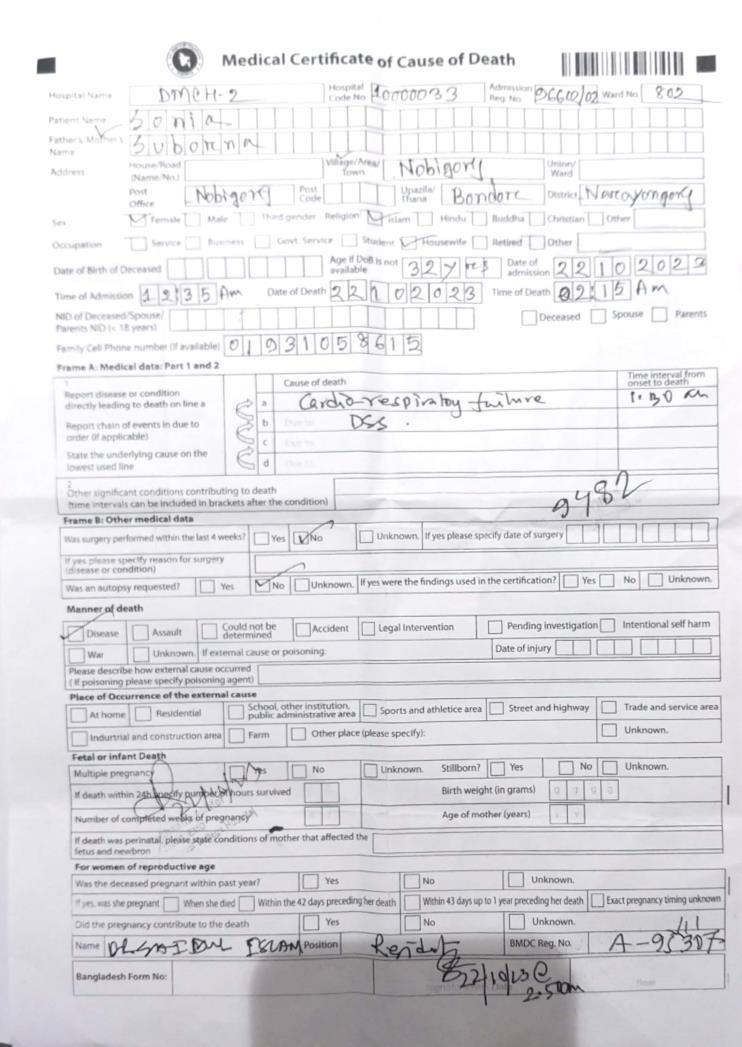 Medical Certificate of Cause of Death
Hospital Name DMCH-2 Hospital Code No 10000033 Admission Reg. No Ward No 802
Patient Name Sonia
Father's/Mother's Name Suborna
Address House/Road (Name/No.) Village/Area/Town Nobigong Union/Ward
Post Office Nobigong Post Code Upazila/Thana Bondore District Narayongong
Sex Female Male Third gender Religion Islam Hindu Buddha Christian Other
Occupation Service Business Govt. Service Student Housewife Retired Other
Date of Birth of Deceased Age if DoB is not available 32 yrs Date of admission 22102023
Time of Admission 12:35 Am Date of Death 22102023 Time of Death 02:15 Am
NID of Deceased/Spouse/Parents NID (< 18 years) Deceased Spouse Parents
Family Cell Phone number (If available) 01931058615
Frame A: Medical data: Part 1 and 2
1 Cause of death Time interval from onset to death
Report disease or condition directly leading to death on line a a Cardio-respiratoy failure
Report chain of events in due to order (if applicable) b Due to DSS.
c Due to
State the underlying cause on the lowest used line d Due to
2
Other significant conditions contributing to death (time intervals can be included in brackets after the condition) 9482
Frame B: Other medical data
Was surgery performed within the last 4 weeks? Yes No Unknown. If yes please specify date of surgery
If yes please specify reason for surgery (disease or condition)
Was an autopsy requested? Yes No Unknown. If yes were the findings used in the certification? Yes No Unknown.
Manner of death
Disease Assault Could not be determined Accident Legal Intervention Pending investigation Intentional self harm
War Unknown. If external cause or poisoning: Date of injury
Please describe how external cause occurred (If poisoning please specify poisoning agent)
Place of Occurrence of the external cause
At home Residential School, other institution, public administrative area Sports and athletice area Street and highway Trade and service area
Indurtrial and construction area Farm Other place (please specify): Unknown.
Fetal or infant Death
Multiple pregnancy Yes No Unknown. Stillborn? Yes No Unknown.
If death within 24h specify number of hours survived Birth weight (in grams)
Number of completed weeks of pregnancy Age of mother (years)
If death was perinatal, please state conditions of mother that affected the fetus and newbron
For women of reproductive age
Was the deceased pregnant within past year? Yes No Unknown.
If yes, was she pregnant When she died Within the 42 days preceding her death Within 43 days up to 1 year preceding her death Exact pregnancy timing unknown
Did the pregnancy contribute to the death Yes No Unknown.
Name DR. SAIDUL ISLAM Position Resident BMDC Reg. No. A-95307
Bangladesh Form No: 22/10/23 @
2.50am